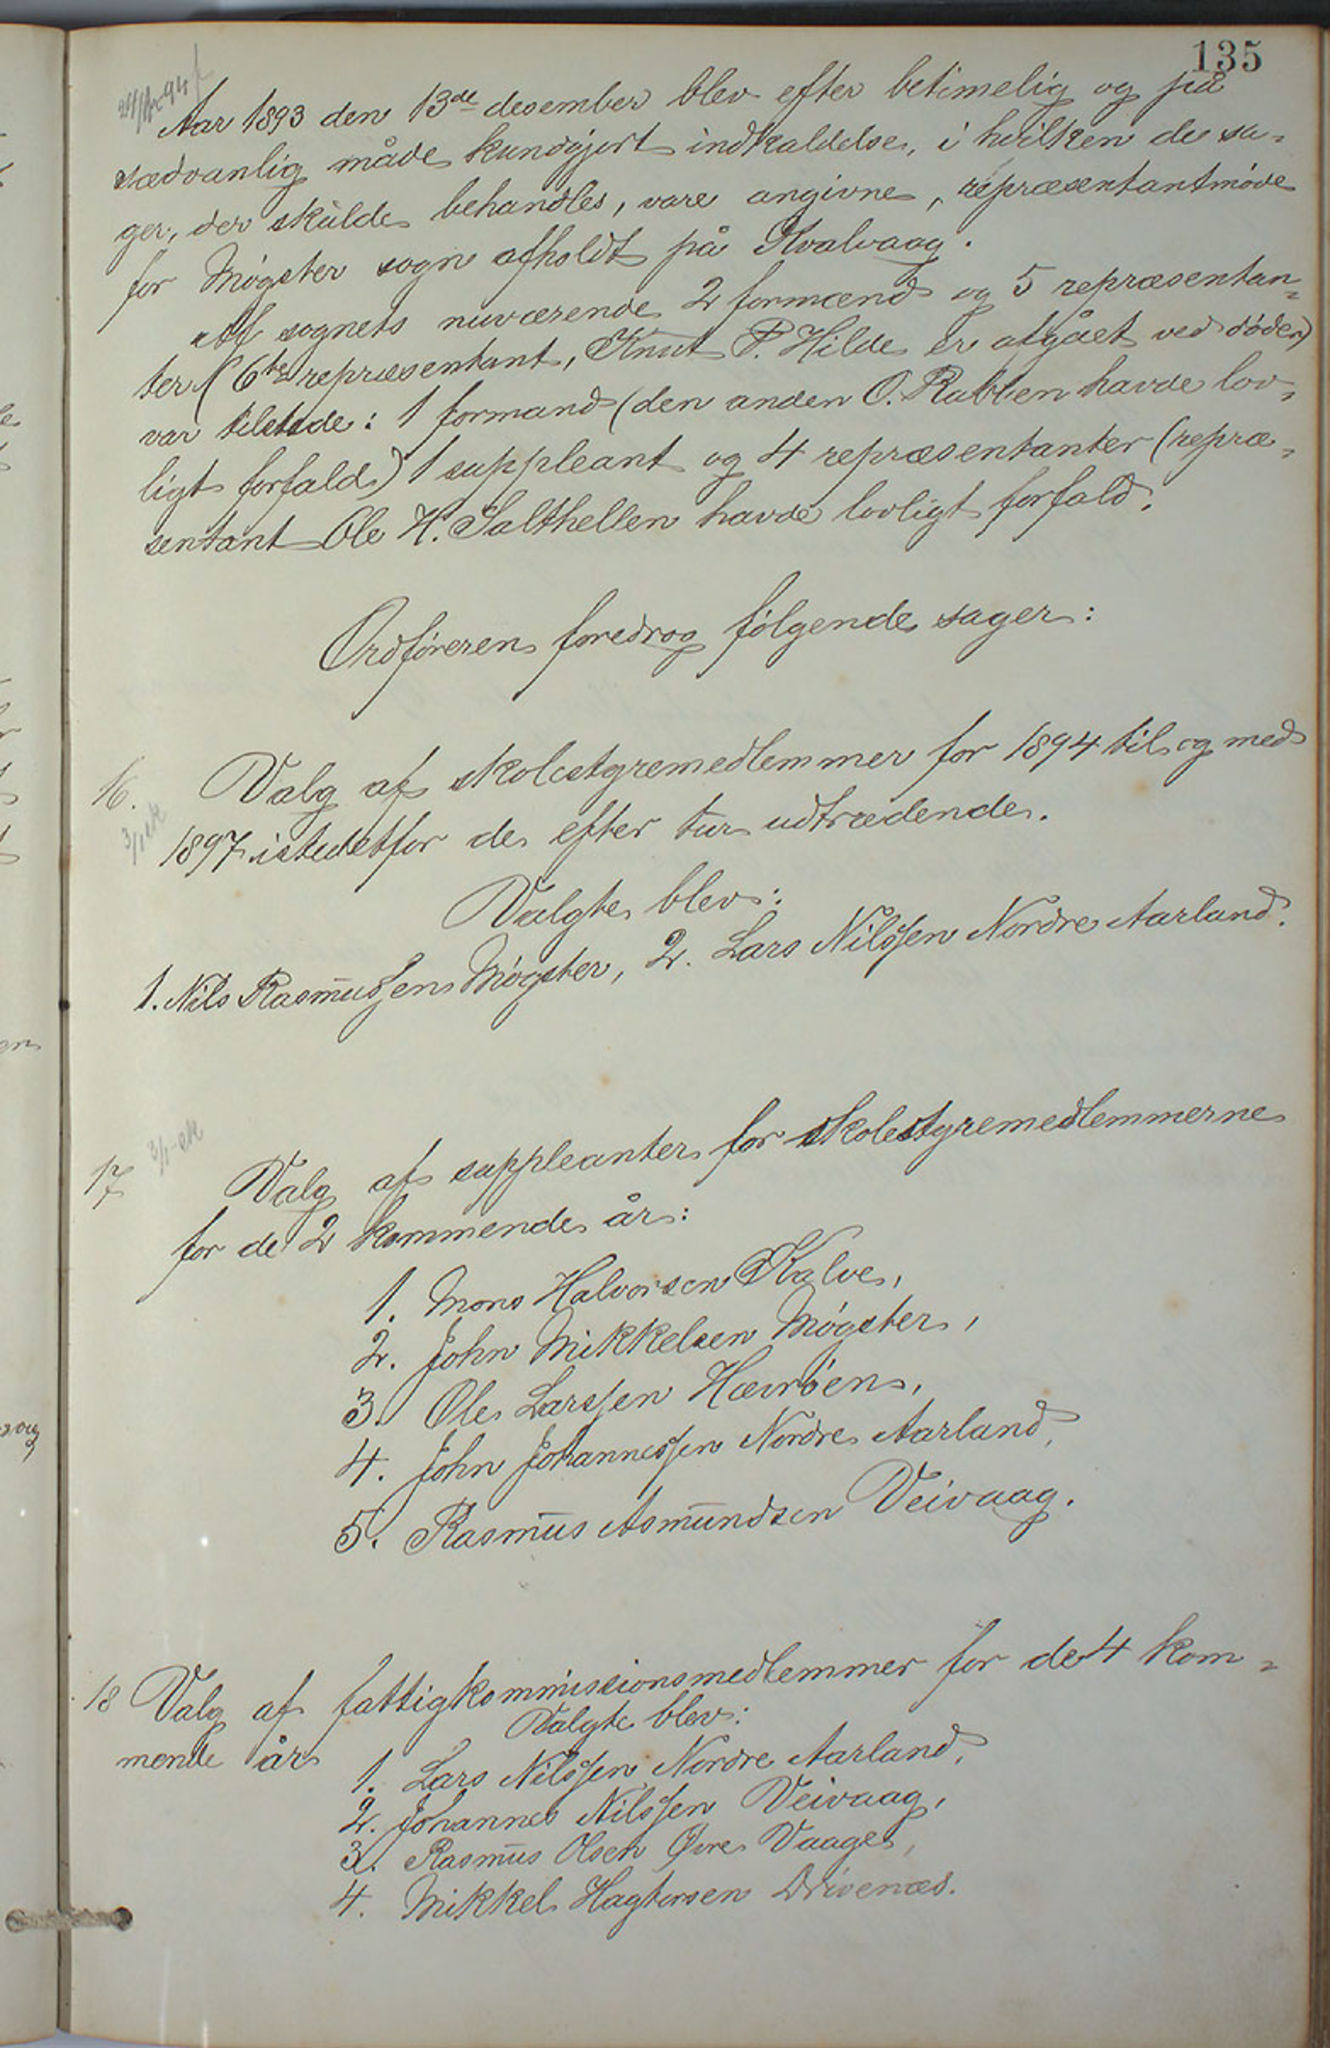 135
Aar 1893 den 13de desember blev efter betimelig og på
sædvanlig måde kundgjort indkaldelse, i hvilken de sa-
ger, der skulde behandles, vare angivne, repræsentantmøde
for Møgster sogn afholdt på Hvalvaag.
Af sognets nuværende 2 formænd og 5 repræsentan-
ter (6te repræsentant, Knut P. Hilde er afgået ved døden)
var tilstede: 1 formand (den anden O. Rabben havde lov-
ligt forfald) 1 suppleant og 4 repræsentanter (repræ-
sentant Ole H. Salthellen havde lovligt forfald.
Ordføreren foredrog følgende sager:
16. Valg af skolestyremedlemmer for 1894 til og med
1897 istedetfor de efter tur udtrædende.
Valgte blev:
1. Nils Rasmussen Møgster, 2. Lars Nilssen Nordre Aarland.
17 Valg af suppleanter for skolestyremedlemmerne
for de 2 kommende år:
1. Mons Halvorsen Kalve,
2. John Mikkelsen Møgster,
3. Ole Larssen Hævrøen,
4. John Johannessen Nordre Aarland,
5. Rasmus Asmundsen Veivaag.
18 Valg af fattigkommissionsmedlemmer for de 4 kom-
mende år
Valgte blev:
1. Lars Nilssen Nordre Aarland,
2. Johannes Nilssen Veivaag,
3. Rasmus Olsen Øvre Vaage,
4. Mikkel Hagtorsen Drivenæs.